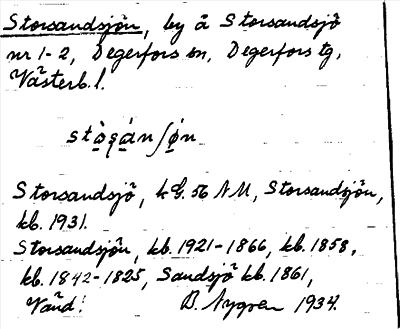 Storsandsjön, by å Storsandsjö
nr 1-2, Degerfors sn, Degerfors tg,
Västerb. l.
Storsandsjö, k G. 56 NM, Storsandsjön,
kb. 1931.
Storsandsjön, kb. 1921-1866, kb. 1858,
kb. 1842-1825, Sandsjö kb. 1861,
B. Nygren 1934.